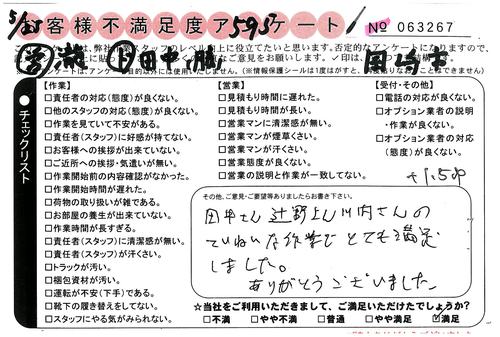 5/25
お客様不満足度アンケート
No 063267
岡崎市
チェックリスト
【作業】
□責任者の対応(態度)が良くない。
□他のスタッフの対応(態度)が良くない。
□作業を見ていて不安がある。
□責任者(スタッフ)に好感が持てない。
□お客様への挨拶が出来ていない。
□ご近所への挨拶・気遣いが無い。
□作業開始前の内容確認がなかった。
□作業開始時間が遅れた。
□荷物の取り扱いが雑である。
□お部屋の養生が出来ていない。
□作業時間が長すぎる。
□責任者(スタッフ)に清潔感が無い。
□責任者(スタッフ)が汗くさい。
□トラックが汚い。
□梱包資材が汚い。
□運転が不安(下手)である。
□靴下の履き替えをしてない。
□スタッフにやる気がみられない。
【営業】
□見積もり時間に遅れた。
□見積もり時間が長い。
□営業マンに清潔感が無い。
□営業マンが煙草くさい。
□営業マンが汗くさい。
□営業態度が良くない。
□営業の説明と作業が一致してない。
【受付・その他】
□電話の対応が良くない。
□オプション業者の説明
・作業が良くない。
□オプション業者の対応
(態度)が良くない。
その他、ご意見・ご要望等ありましたらお書き下さい。
田中さん辻野さん川内さんの
ていねいな作業で とても満足
しました。
ありがとうございました。
☆当社をご利用いただきまして、ご満足いただけたでしょうか?
□不満 □やや不満 □普通 □やや満足 ☑満足